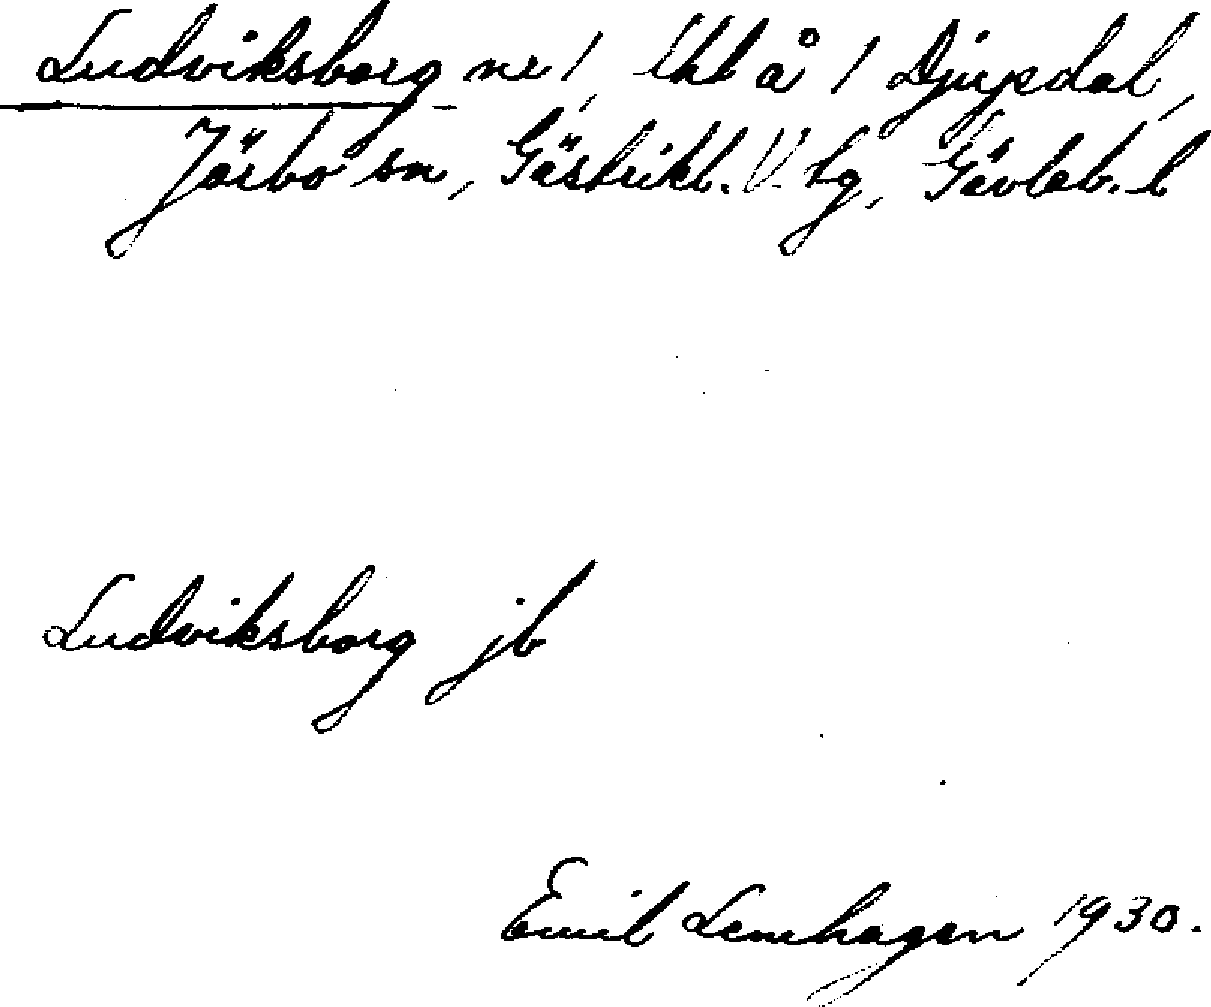 Ludviksborg nr 1, lht å 1 Djupdal,
Järbo sn, Gästrikl. V. tg, Gävleb. l
Ludviksborg jb
Emil Lenhagen 1930.